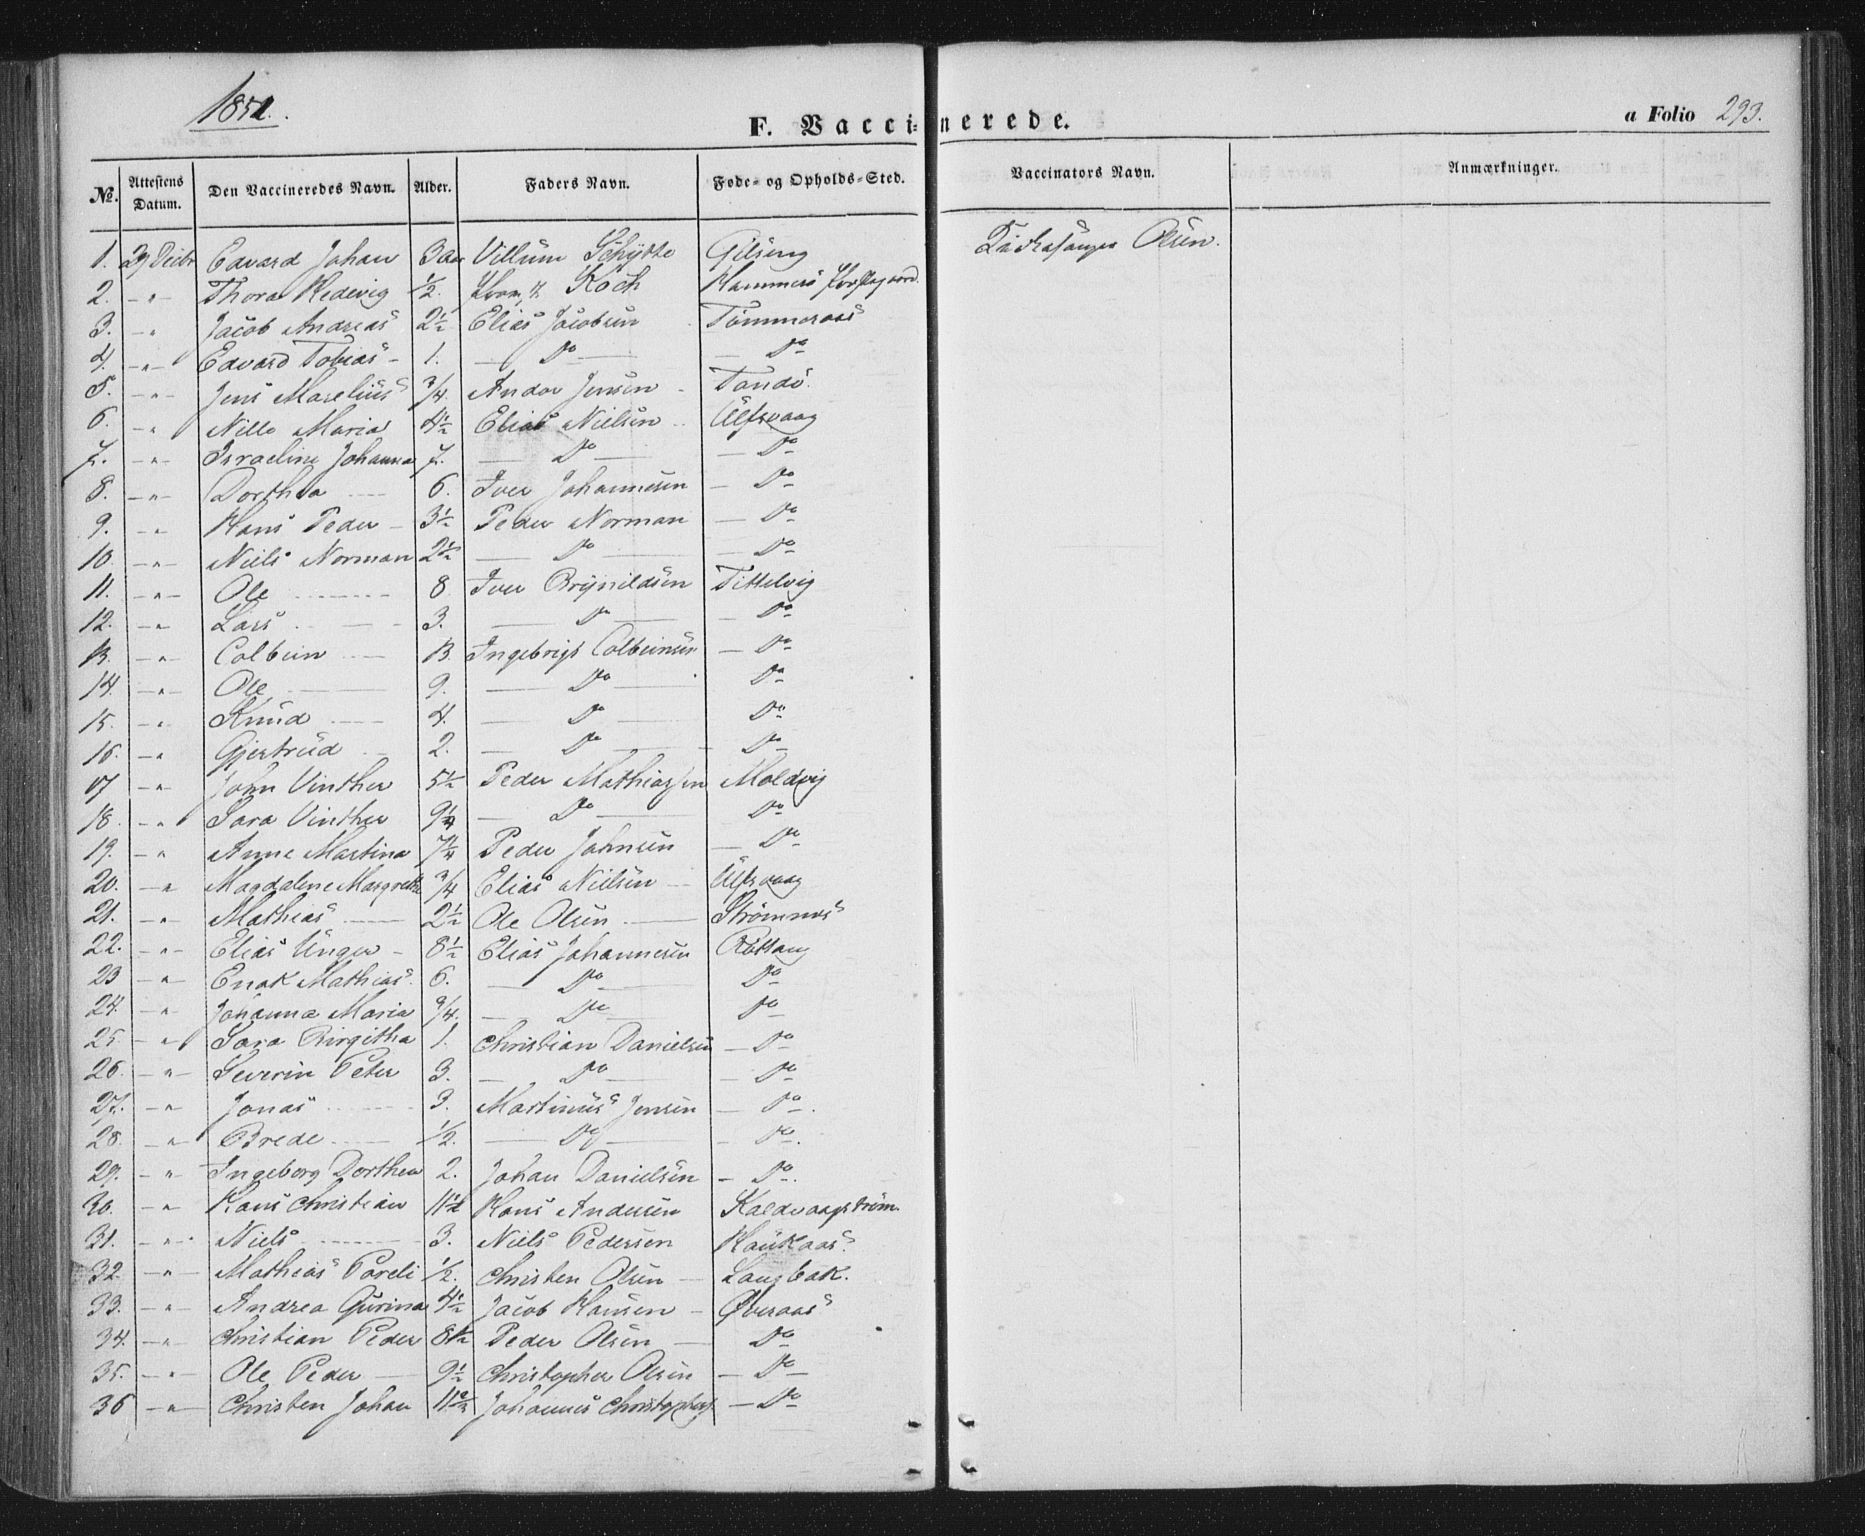 1851.
F. Vaccinerede.
a Folio 293.
No. Attestens Datum. Den Vaccineredes Navn. Alder. Faders Navn. Føde- og Opholds-Sted. Vaccinators Navn. Anmærkninger.
1. 29 Decbr Edvard Johan 3 Aar Villum Schytte Gilseng Kirkesanger Olsen.
2. -"- Thora Hedevig 1/2. Koch Hammerø Præstegaard
3. -"- Jacob Andreas 2 1/2 Elias Jacobsen Tømmeraas
4. -"- Edvard Tobias - 1. - Do - - Do
5. -"- Jens Marelius 3/4. Andor Jensen - Tandø.
6. -"- Nille Maria 4 1/2 Elias Nielsen Ulfsvaag
7. -"- Israeline Johanna 7. - Do - - Do
8. -"- Dorthea 6. Iver Johannesen - Do
9. -"- Hans Peder - 3 1/2 Peder Norman - Do
10. -"- Niels Norman 2 1/2 - Do - - Do
11. -"- Ole 8 Iver Brynildsen Tittelvig
12. -"- Lars 3. - Do - - Do
13. -"- Colbein 13. Ingebrigt Colbeinsen - Do
14. -"- Ole 9. - Do - Do
15. -"- Knud 4. - Do - Do
16. -"- Gjertrud 2. - Do - Do
17 -"- John Vinther 5 1/2 Peder Mathiassen Moldvig
18. -"- Sara Vinther 9 1/4 - Do - Do
19. -"- Anne Martina 7 1/4 Peder Johnsen - Do
20. -"- Magdalene Margrethe 3/4 Elias Nielsen - Ulfsvaag
21. -"- Mathias 2 1/2 Ole Olsen - Strømnes
22. -"- Elias Unger - 8 1/2 Elias Johannesen Røttang
23 -"- Enok Mathias 6. - Do - Do
24. -"- Johanna Maria 3/4. - Do - Do
25 -"- Sara Birgitha 1. Christian Danielsen - Do
26. -"- Severin Peter 3. - Do - - Do
27. -"- Jonas 3. Martinus Jensen - Do.
28. -"- Brede 1/2. - Do - - Do.
29. -"- Ingeborg Dorthea 2. Johan Danielsen - Do.
30. -"- Hans Christian 11 1/2 Hans Andersen Kaldvaagstrøm.
31. -"- Niels 3. Niels Pedersen Haukaas.
32. -"- Mathias Pareli 1/2. Christen Olsen - Langbak.
33. -"- Andrea Gurina 4 1/2 Jacob Hansen - Øveraas
34. -"- Christian Peder 8 1/2 Peder Olsen - Do
35. -"- Ole Peder - 9 1/2 Christopher Olsen - Do -
36 -"- Christen Johan 11 1/2 Johannes Christophers - Do